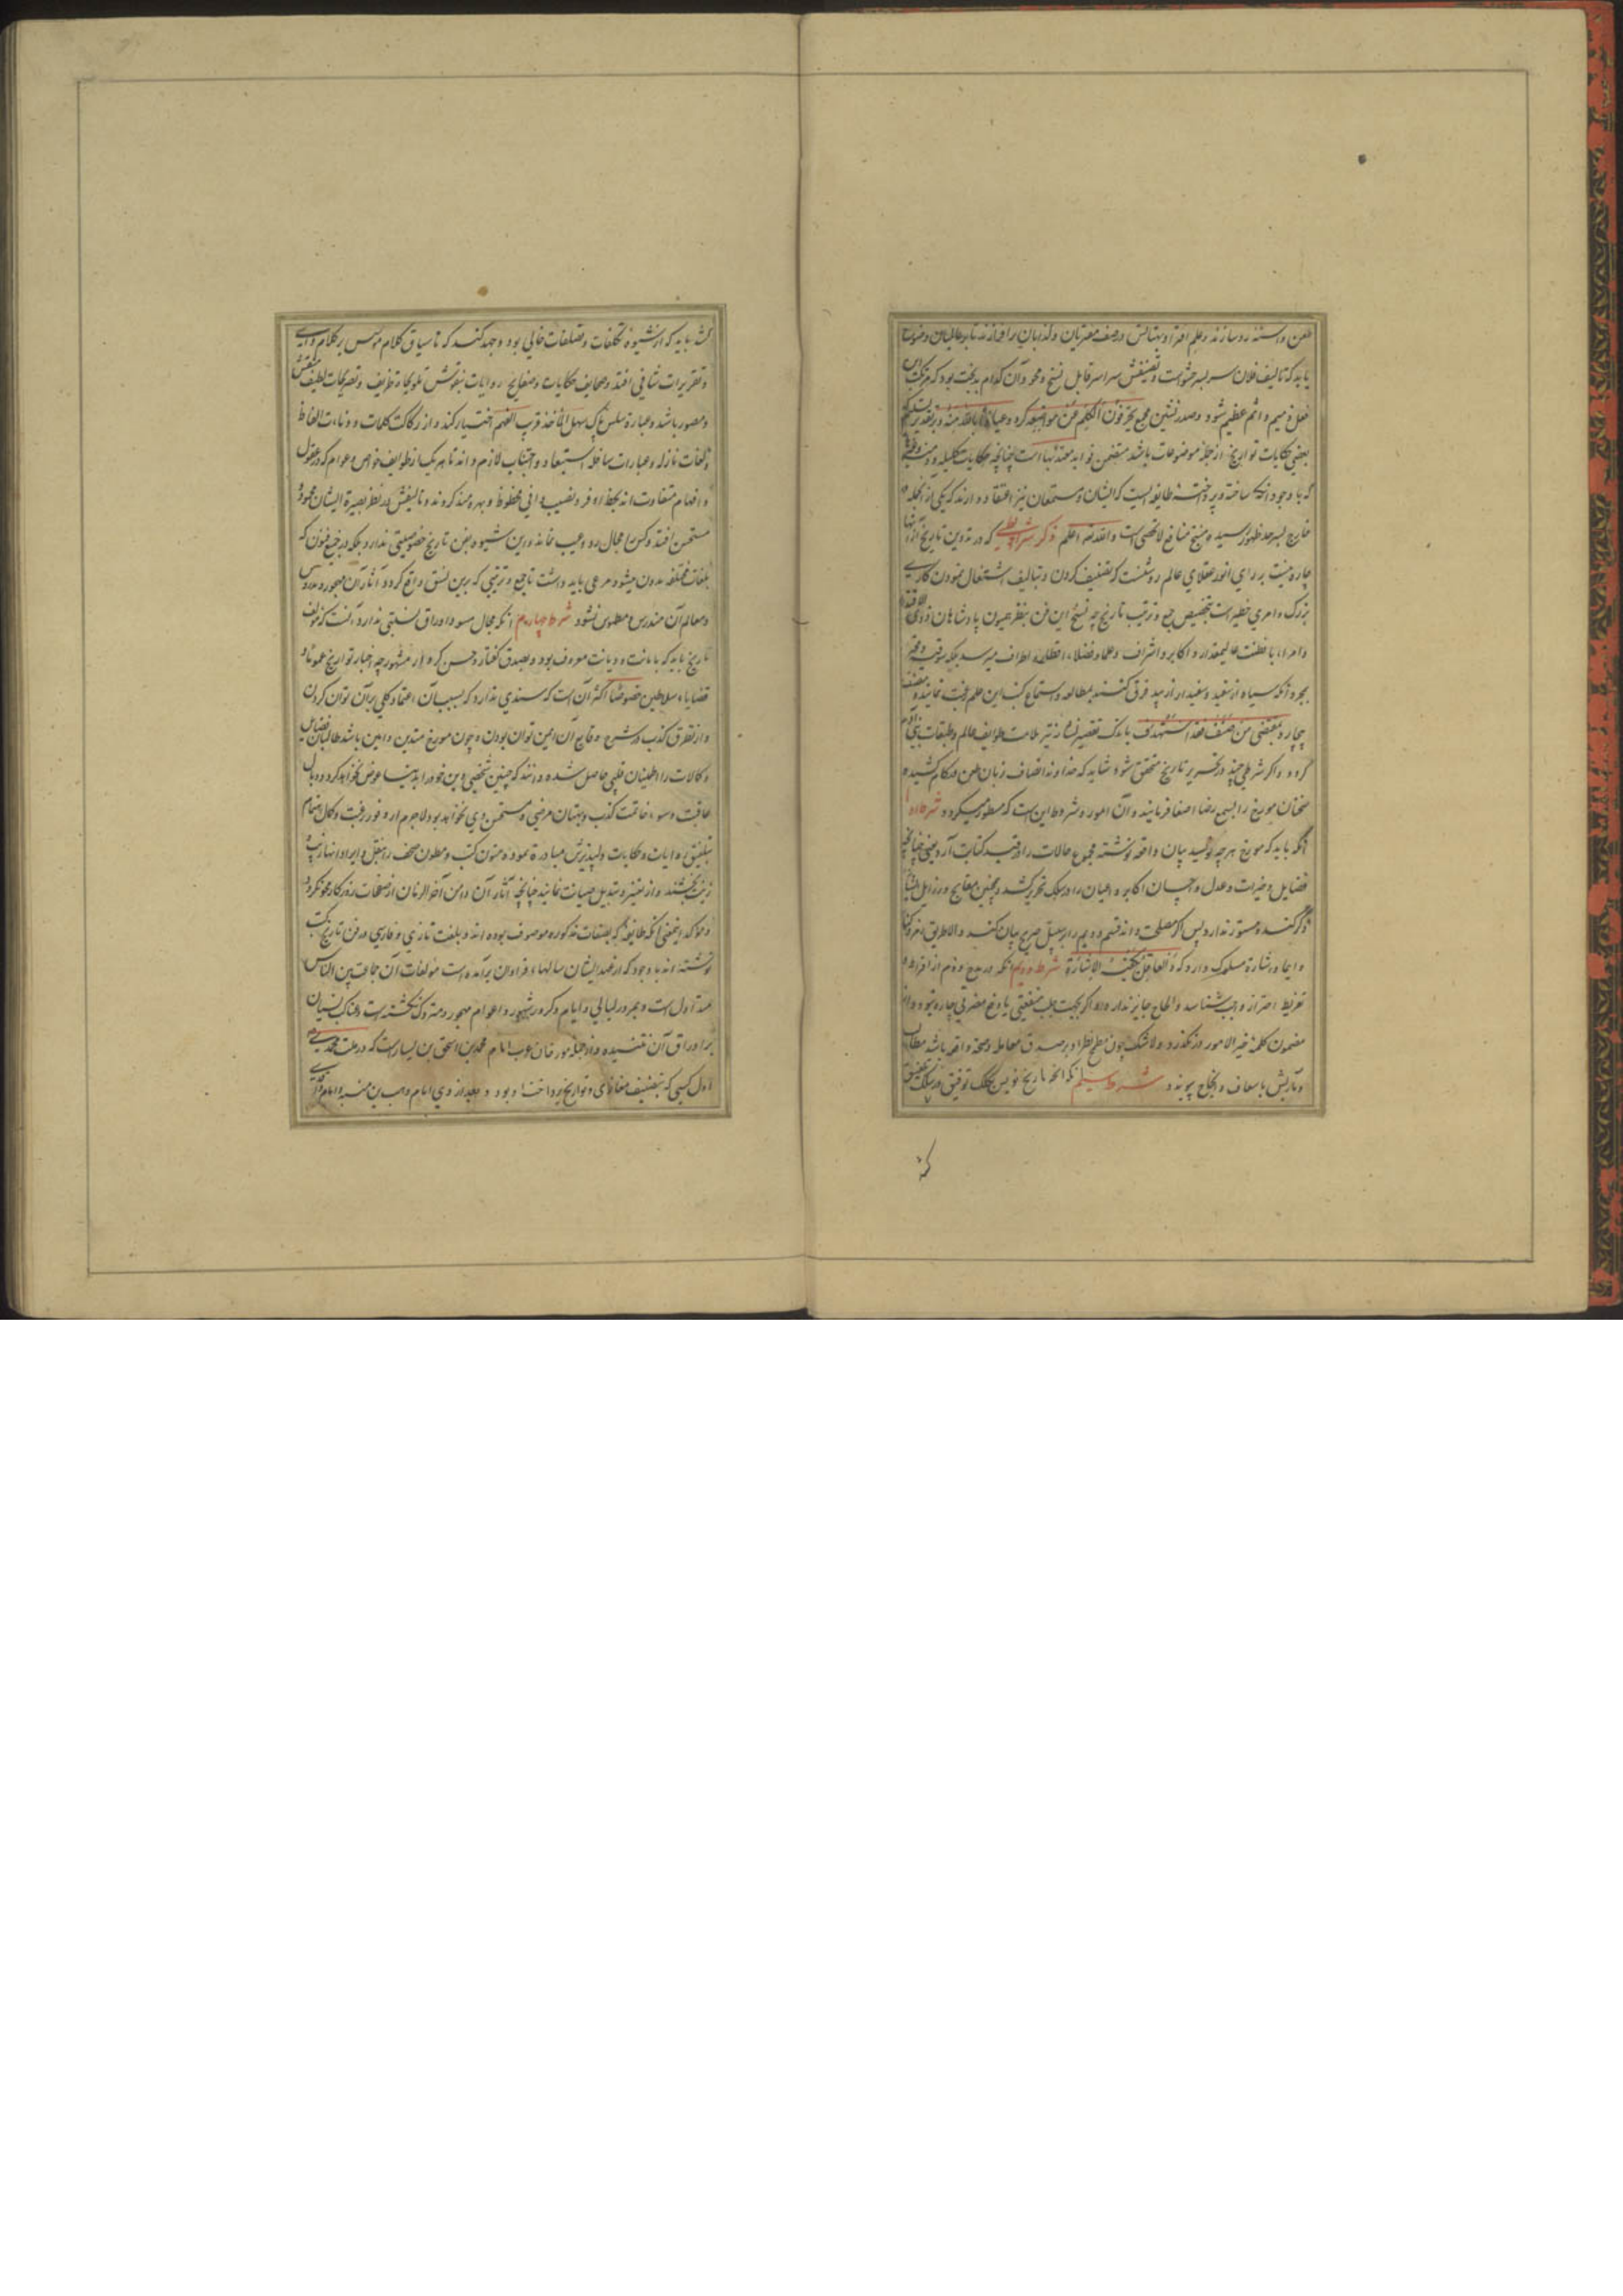 طعن و استهزا سازند و علم افترا و بهتانش در صف مفتریان و کذابان برافرازند تا بر عالمیان وضوح
یابد که تالیف فلان سر بسر حشو است و تصنیفش سراسر قابل نسخ و محو و آن کدام بدبخت بود که مرتکب این
فعل ذمیم و اثم عظیم شود و صدر نشین مجمع یحرفون الکلم عن مواضعه کرده و عیاذا بالله منه و بر تقدیر تسلیم که
بعضی حکایات تواریخ از جمله موضوعات باشد متضمن فواید معتدبها است چنانچه حکایات کلیله و دمنه
که با وجود آنکه ساخته و پرداخته طایفه ایست که ایشان و مستمعان نیز اعتقاد دارند که یکی از آنجمله در
خارج بسرحد ظهور نرسیده منتج منافع لاتحصی است والله تعالی اعلم ذکر شرایطی که در تدوین تاریخ از آنها
چاره نیست بر رای انور عقلای عالم روشنست که تصنیف کردن و بتالیف اشتغال نمودن کاری
بزرگ و امری خطیر است بتخصیص جمع و ترتیب تاریخ چه نسخ این فن بنظر همیون پادشاهان ذوی الاقتدار
و امرا با فطنت عالیمقدار و اکابر و اشراف و علما و فضلاء اقطار و اطراف میرسد بلکه سوقیه و محترفه
بمجرد آنکه سیاه از سفید و سفید از سیاه فرق کنند بمطالعه و استماع کتب این علم رغبت نمایند و مصنف
بیچاره بمقتضی من صنف فقد استهدف باندک تقصیر نشانه تیر ملامت طوایف عالم و طبقات بنی آدم
گردد و اگر شرطی چند در تحریر تاریخ متحقق شود شاید که خداوند انصاف زبان طعن در کام کشیده
سخنان مورخ را بسمع رضا اصغا فرمایند و آن امور و شروط این است که مسطور میگردد شرط اول
آنکه باید که مورخ هر چه نویسد بیان واقعه نوشته مجموع حالات را در قید کتابت آرد یعنی چنانچه
فضایل و خیرات و عدل و احسان اکابر و اعیان را در سلک تحریر کشد همچنین مقابح و رذایل ایشان
ذکر کند و مستور ندارد پس اگر مصلحت داند قسم دویم را بر سبیل صریح بیان کند والا طریق رمز و کنایه
و ایما و اشاره مسلوک دارد که و العاقل تکفیه الاشارة شرط دویم آنکه در مدح و ذم از افراط و
تفریط احتراز واجب شناسد و الحاح جایز ندارد و اگر بجهت جلب منفعتی یا دفع مضرتی چاره نبود و از
مضمون کلمه خیر الامور در نگذرد و لا شک چون مطمح نظر او بر صدق معامله و صحت واقعه باشد مطالب
و مآربش باسعاف و انجاح پیوندد شرط سیم آنکه تاریخ نویس بکلک توفیق در سلک تحقیق
کشد باید که از شیوه تکلفات و تصلفات خالی بود و جهد کند که تا سیاق کلام موسس بر کلام
و تقریرات شافی افتد و صحایف حکایات و صفایح روایات بنقوش تلویحات ظریف و تصریحات لطیف منقش
و مصور باشد و عبارة سلس پاک سهل المأخذ قریب الفهم اختیار کند و از رکاکت کلمات و دنائت الفاظ
و لغات نازله و عبارات سافله استبعاد و اجتناب لازم داند تا هر یک از طوایف خواص و عوام که در عقول
و افهام متفاوت اند بحظ وافر و نصیب وافی محظوظ و بهره مند گردند و تالیفش در نظر بصیرة ایشان محمود و
مستحسن افتد و کسرا مجال رد و عیب نماند و این شیوه بفن تاریخ خصوصیتی ندارد بلکه در جمیع فنون که
بلغات مختلفه مدون میشود مرعی باید داشت تا جمع و ترتیبی که برین نسق واقع گردد آثار آن مهجور و مدروس
و معالم آن مندرس و مطموس نشود شرط چهارم آنکه مجال مسود اوراق نسبتی ندارد آنست که مولف
تاریخ باید که بامانت و دیانت معروف بود و بصدق گفتار و حسن کردار مشهور چه اخبار تواریخ عموما و
قضایاء سلاطین خصوصا اکثر آن است که سندی ندارد که بسبب آن اعتماد کلی بر آن توان کردن
و از تطرق کذب در شرح وقایع آن ایمن توان بودن و چون مورخ متدین و امین باشد طالبان فضایل
و کمالات را اطمینان قلبی حاصل شده دانند که چنین شخصی دین خود را بدنیا عوض نخواهد کرد و وبال
عاقبت و سوء خاتمت کذب و بهتان مرضی و مستحسن وی نخواهد بود لاجرم از وفور رغبت و کمال اهتمام
بتلفیق روایات و حکایات دلپذیرش مبادرة نموده متون کتب و بطون صحف را بنقل و ایراد آنها زیب و
زینت بخشند و از تغییر و تبدیل صیانت نمایند چنانچه آثار آن در من آخر الزمان از صفحات روزگار محو نگردد
و مؤکد اینمعنی آنکه طایفه که بصفات مذکوره موصوف بوده اند و بلغت تازی و فارسی در فن تاریخ کتب
نوشته اند با وجود که از عهد ایشان سالهاء فراوان برآمده است مولفات آن جماعت بین الناس
متداول است و بمرور لیالی و ایام و کرور شهور و اعوام مهجور و متروک نگشته است و عناکب نسیان
بر اوراق آن نتنیده و از جمله مورخان عرب امام محمد بن اسحق بن یسار است که در ملت محمدی
اول کسی که بتصنیف مغازی و تواریخ پرداخت او بود و بعد از وی امام وهب بن منبه و امام واقدی